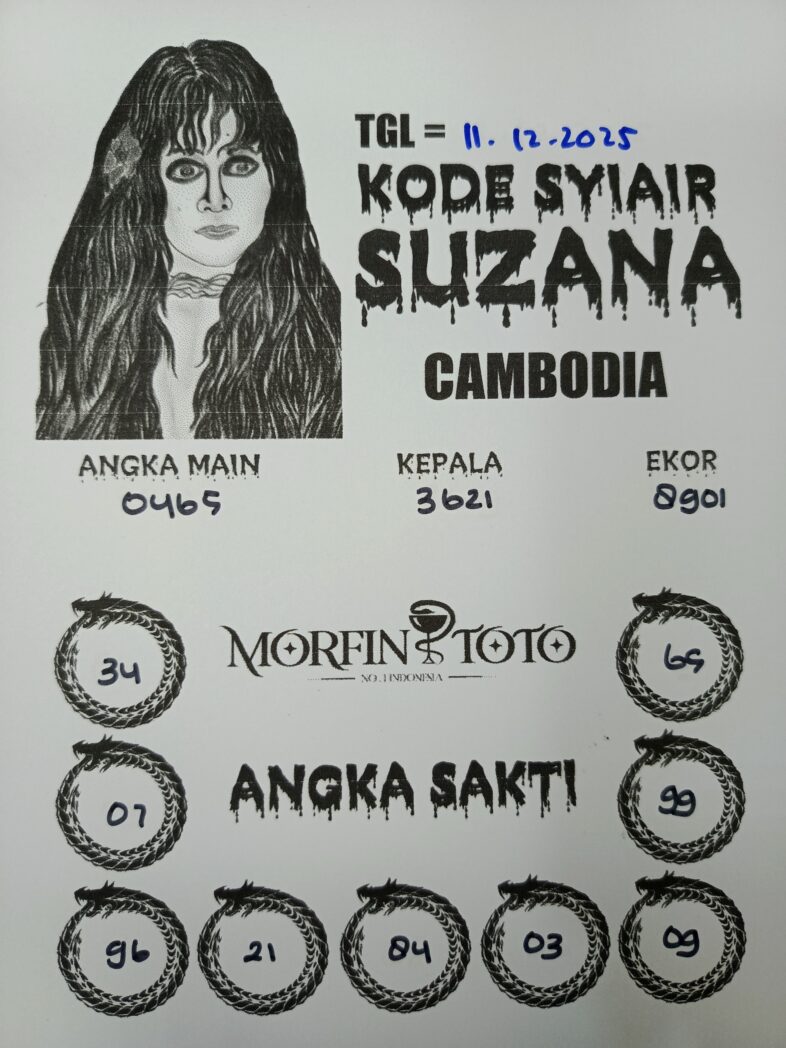 TGL = 11.12.2025
KODE SYIAIR
SUZANA
CAMBODIA
ANGKA MAIN KEPALA EKOR
0465 3621 8901
MORFIN TOTO
NO.1 INDONESIA
34 65
ANGKA SAKTI
07 99
96 21 84 03 09